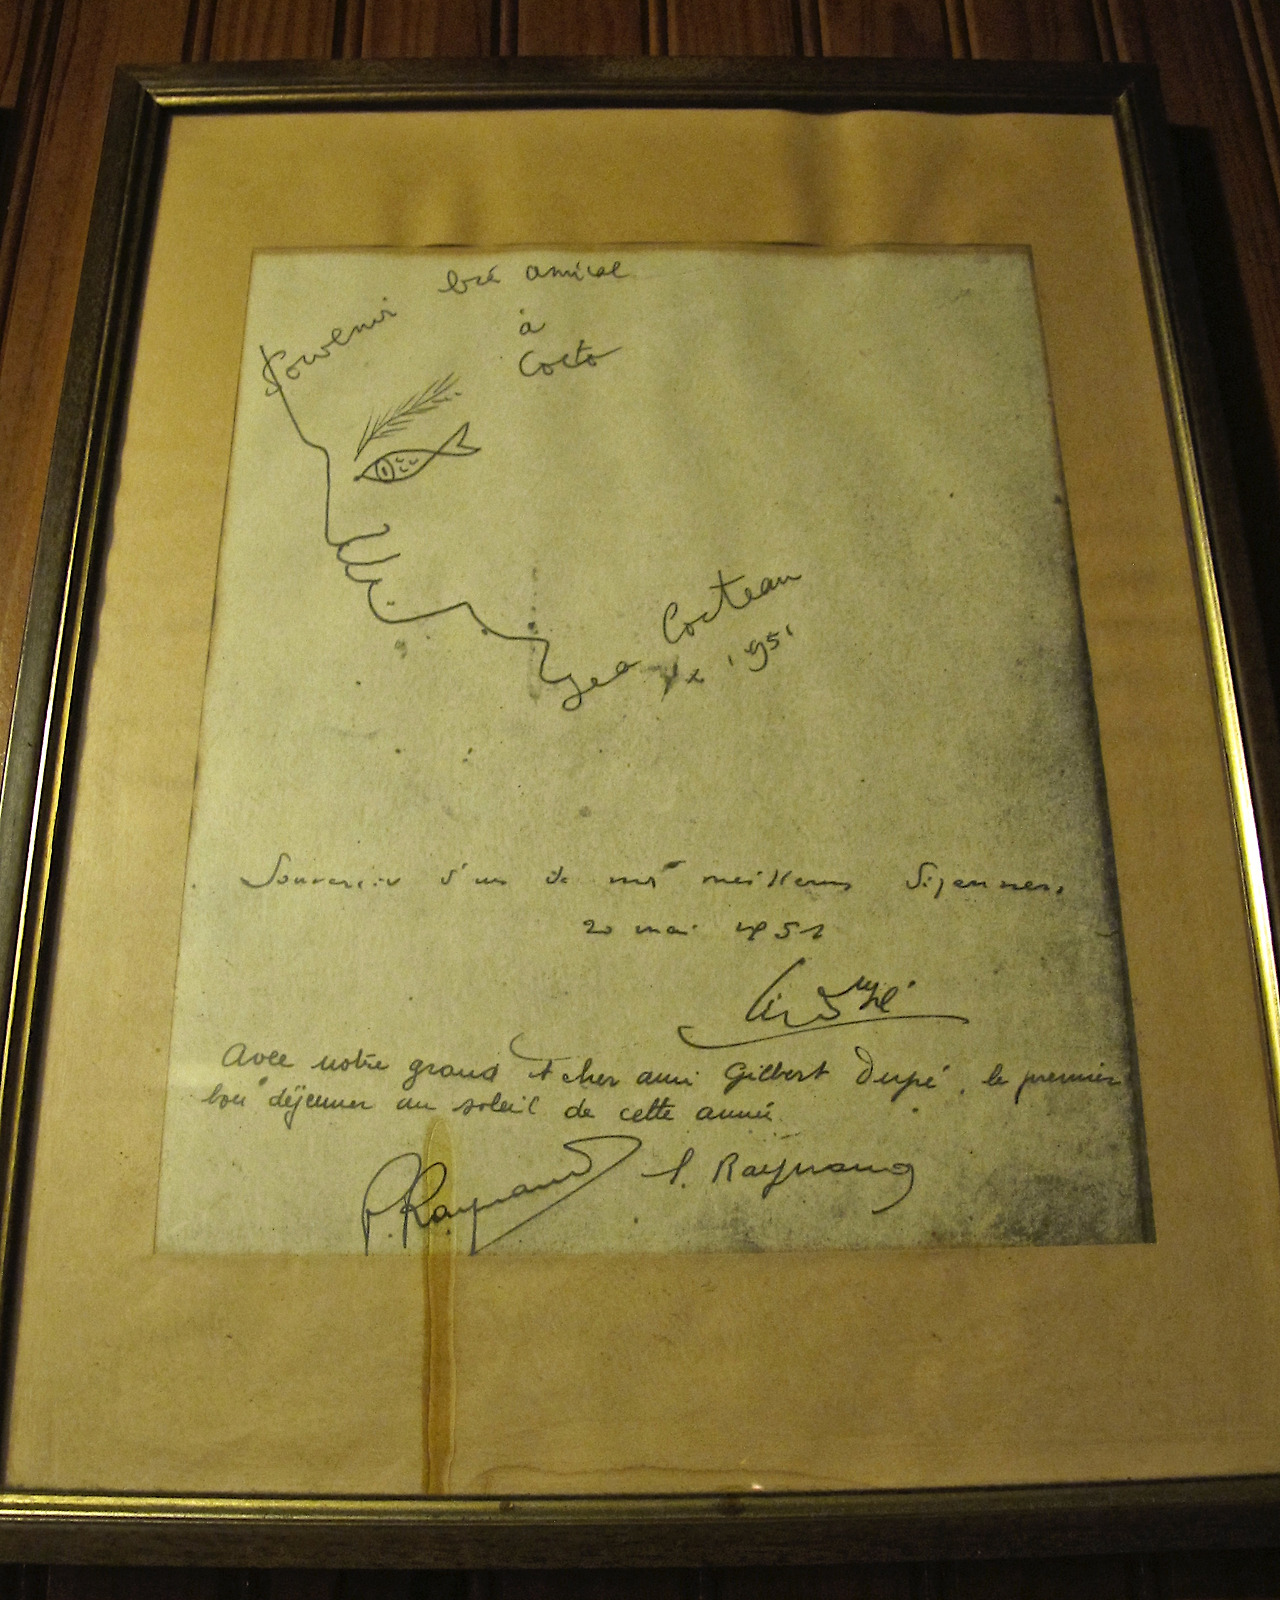 Souvenir très amical
à
Cocto
Jean Cocteau
1951
Souvenir d'un de mes meilleurs déjeuners.
20 mai 1951
Avec notre grand et cher ami Gilbert Dupé, le premier
bon déjeuner au soleil de cette année.
P. Raynaud S. Raynaud